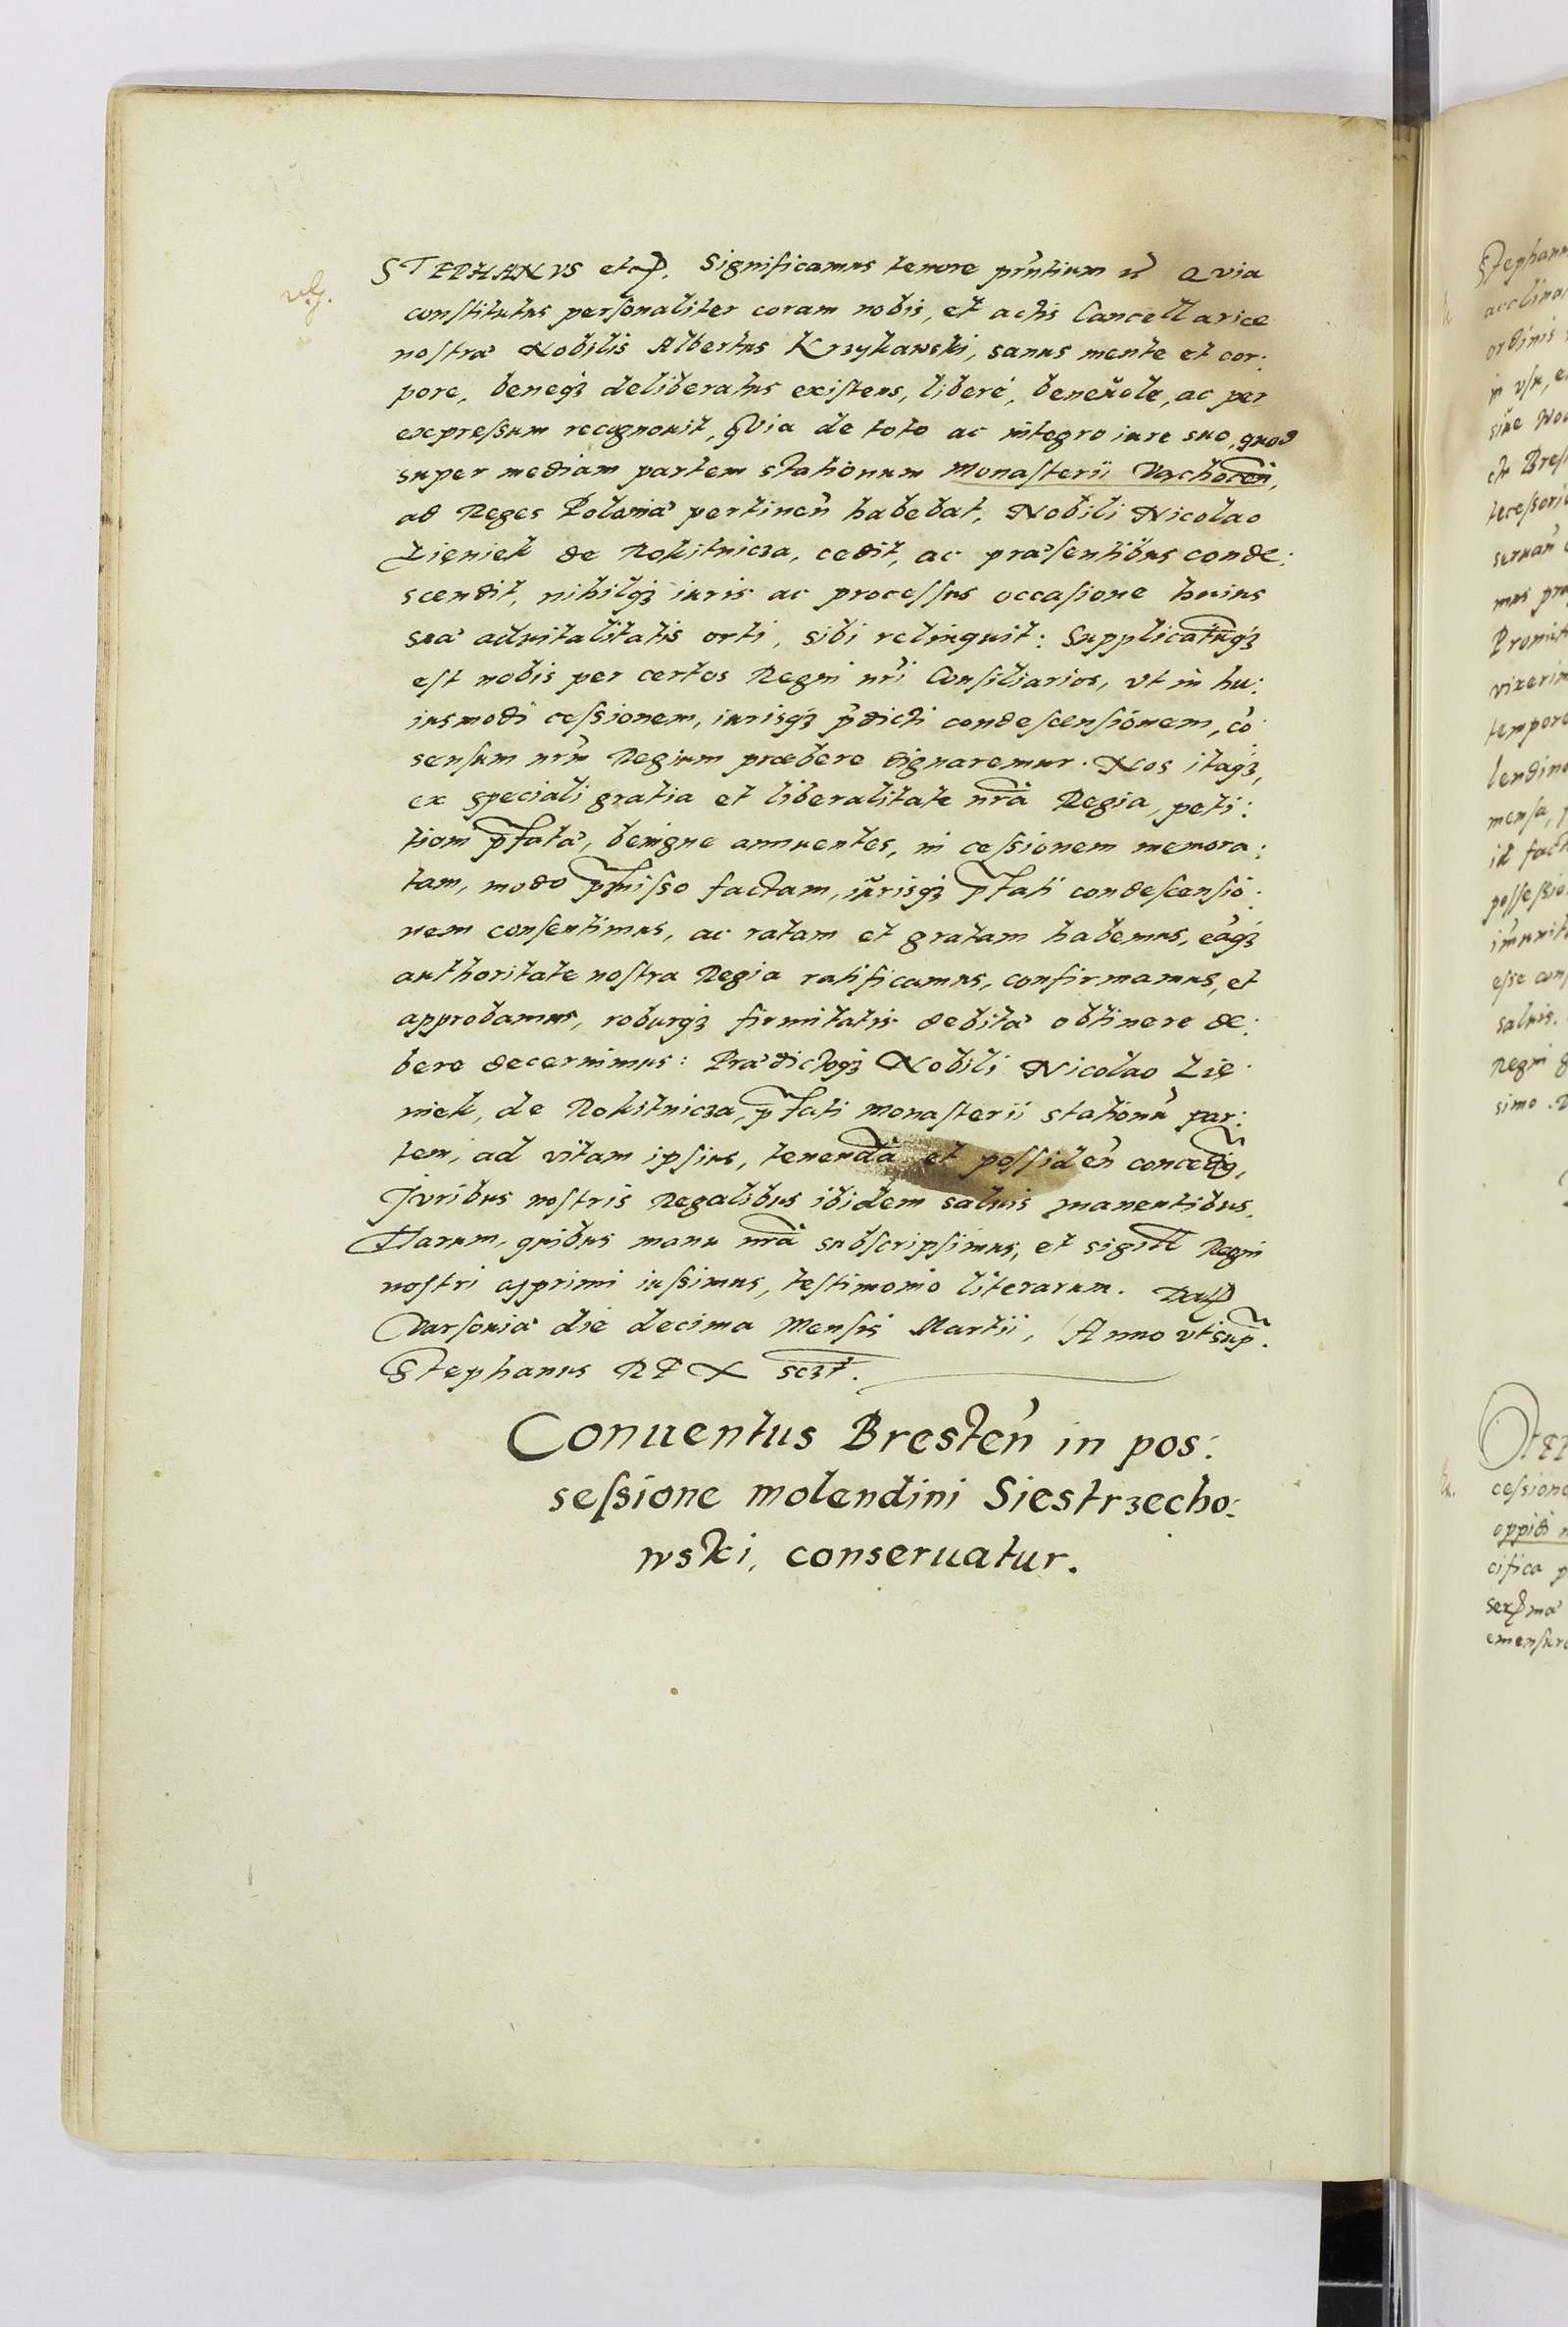 STEPHANVS etc. Significamus tenore pñtium ñ Quia
constitutus personaliter coram nobis, et actis Cancellariæ
nostræ Nobilis Albertus Krzykawski, sanus mente et cor:
pore, beneq3 deliberatus existens, liberè, beneuole, ac per
expressum recognouit, Quia de toto ac integro iure suo, quod
super mediam partem stationum Monasterii Vąchoceñ,
ad Reges Poloniæ pertineñ habebat, Nobili Nicolao
Zięniek de Rokitnicza, cedit, ac præsentibus conde:
scendit, nihilq3 iuris ac processus occasione huius
suæ aduitalitatis orti, sibi relinquit: Supplicatũq3
est nobis per certos Regni nr̃i Consiliarios, vt in hu:
iusmodi cessionem, iurisq3 p̃dicti condescensionem, cõ
sensum nr̃m Regium præbere dignaremur. Nos itaq3,
ex speciali gratia et liberalitate nr̃a Regia, peti:
tioni p̃fatæ, benigne annuentes, in cessionem memora:
tam, modo p̃misso factam, iurisq3 p̃fati condescensio:
nem consentimus, ac ratam et gratam habemus, eaq3
authoritate nostra Regia ratificamus, confirmamus, et
approbamus, roburq3 firmitatis debitæ obtinere de:
bere decernimus: Prædictoq3 Nobili Nicolao Zię
niek, de Rokitnicza, p̃fati monasterii stationũ par:
tem, ad vitam ipsius, tenendã et possideñ concedim9,
Iuribus nostris Regalibus ibidem saluis manentibus.
Harum, quibus manu nr̃a subscripsimus, et sigill Regni
nostri apprimi iussimus, testimonio literarum. Dat
Varsouiæ die decima Mensis Martii, Anno vt sup̃.
Stephanus REX sc3t.
Conuentus Bresteñ in pos:
sessione molendini Siestrzecho:
wski, conseruatur.